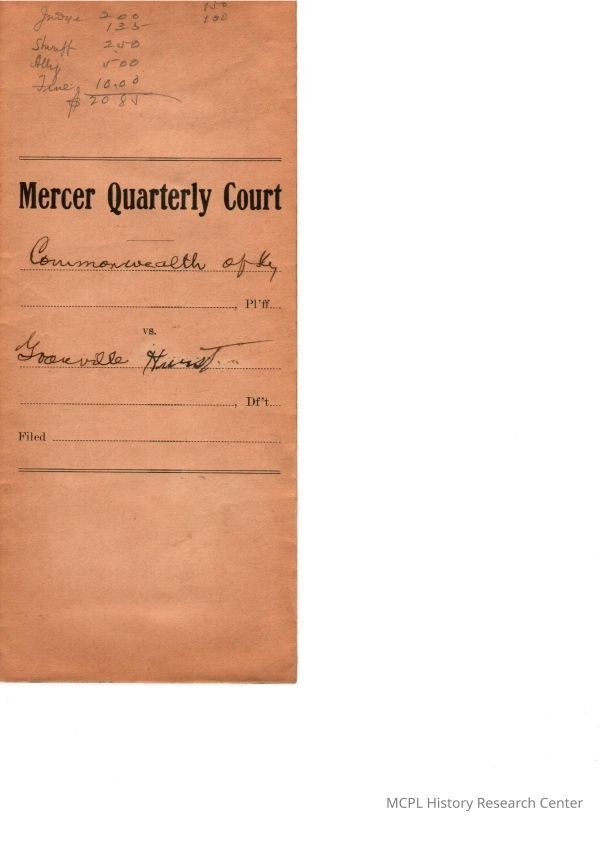 150
Judge 200 100
135
Sheriff 250
Atty 500
Fine 10.00
$20 85
Mercer Quarterly Court
Commonwealth of Ky
, Pl'ff.
vs.
Granville Hurst
, Df't.
Filed
MCPL History Research Center